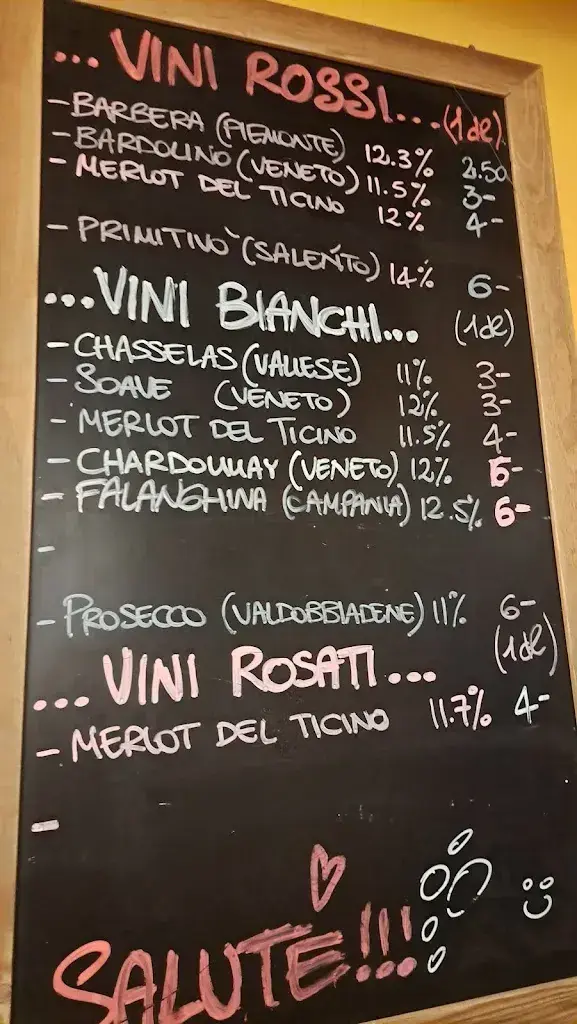 ... VINI ROSSI... (1 dl)
- BARBERA (PIEMONTE) 12.3% 2.50
- BARDOLINO (VENETO) 11.5% 3-
- MERLOT DEL TICINO 12% 4-
- PRIMITIVO (SALENTO) 14% 6-
...VINI BIANCHI... (1dl)
- CHASSELAS (VALLESE) 11% 3-
- SOAVE (VENETO) 12% 3-
- MERLOT DEL TICINO 11.5% 4-
- CHARDONNAY (VENETO) 12% 5-
- FALANGHINA (CAMPANIA) 12.5% 6-
-
- PROSECCO (VALDOBBIADENE) 11% 6-
... VINI ROSATI... (1dl)
- MERLOT DEL TICINO 11.7% 4-
-
SALUTE!!!